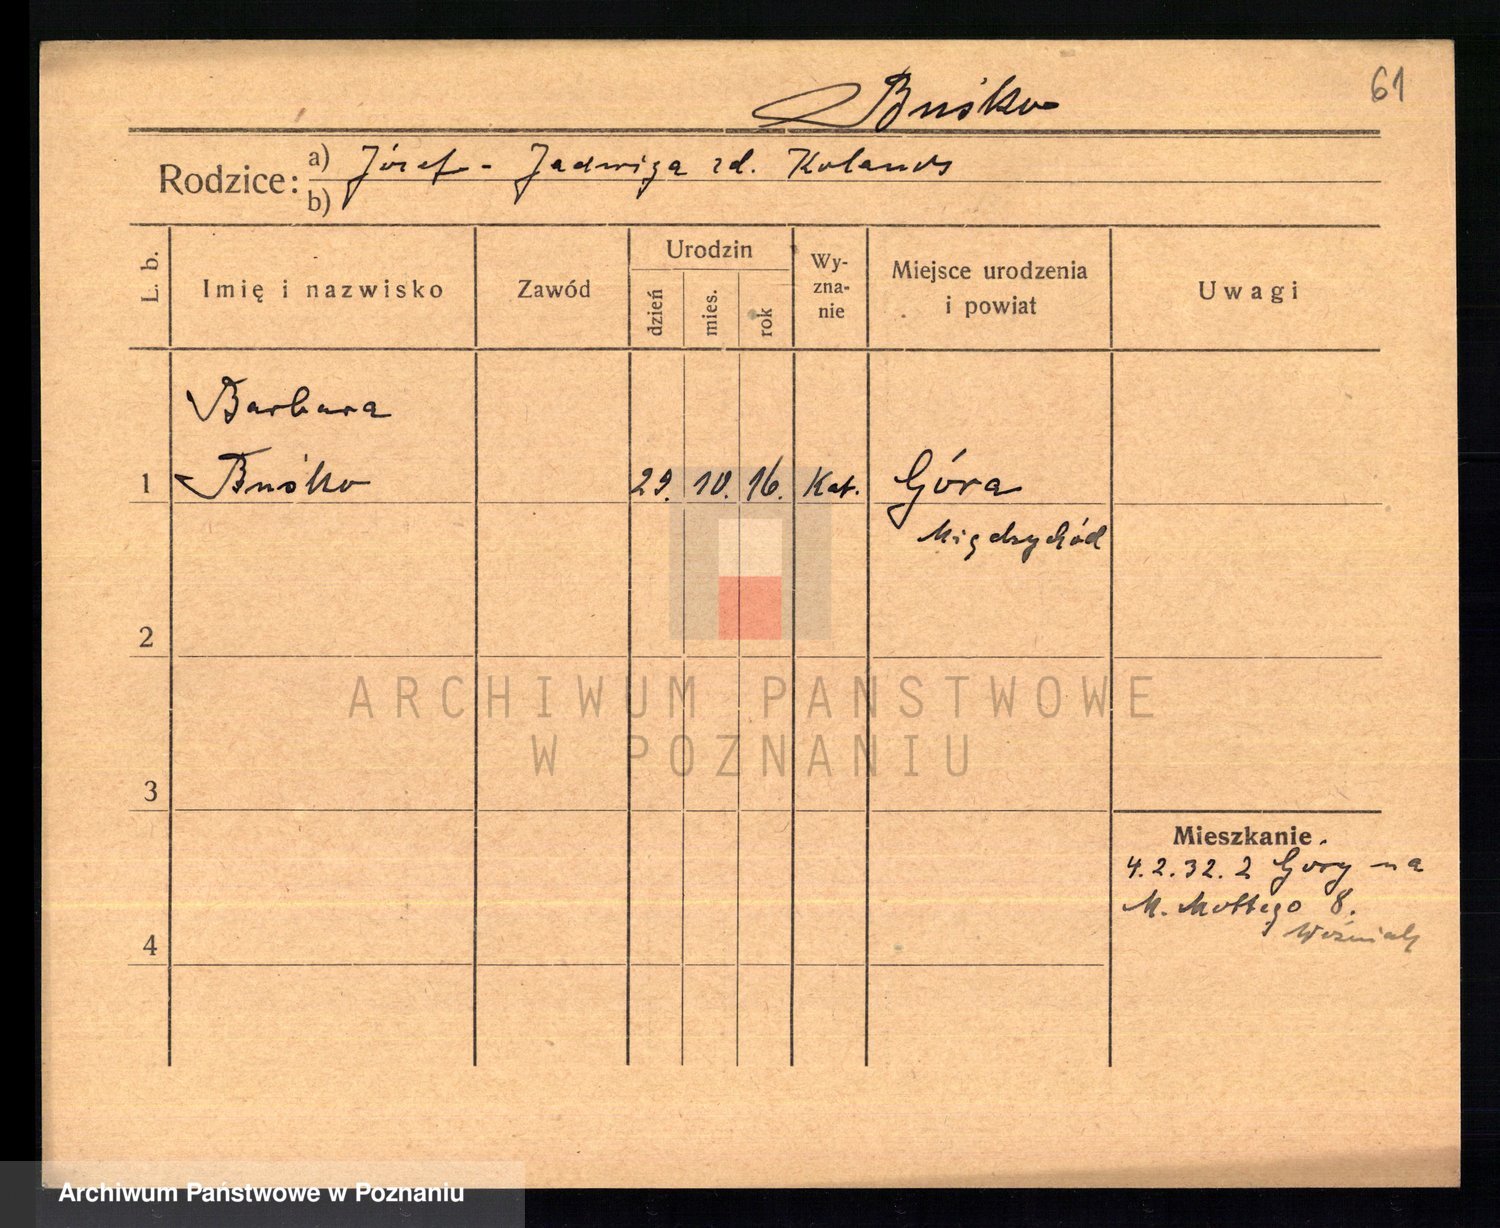 Buśko
61
Rodzice: a) Józef - Jadwiga zd.
b)
L. b. Imię i nazwisko Zawód Urodzin dzień mies. rok Wy-zna-nie Miejsce urodzenia i powiat Uwagi
Barbara
1 Buśko 29. 10. 16. Kat. Góra
Międzychód
2
ARCHIWUM PAŃSTWOWE
W POZNANIU
3
Mieszkanie.
4.2.32. z Góry na
M. Mottego 8.
4
Archiwum Państwowe w Poznaniu